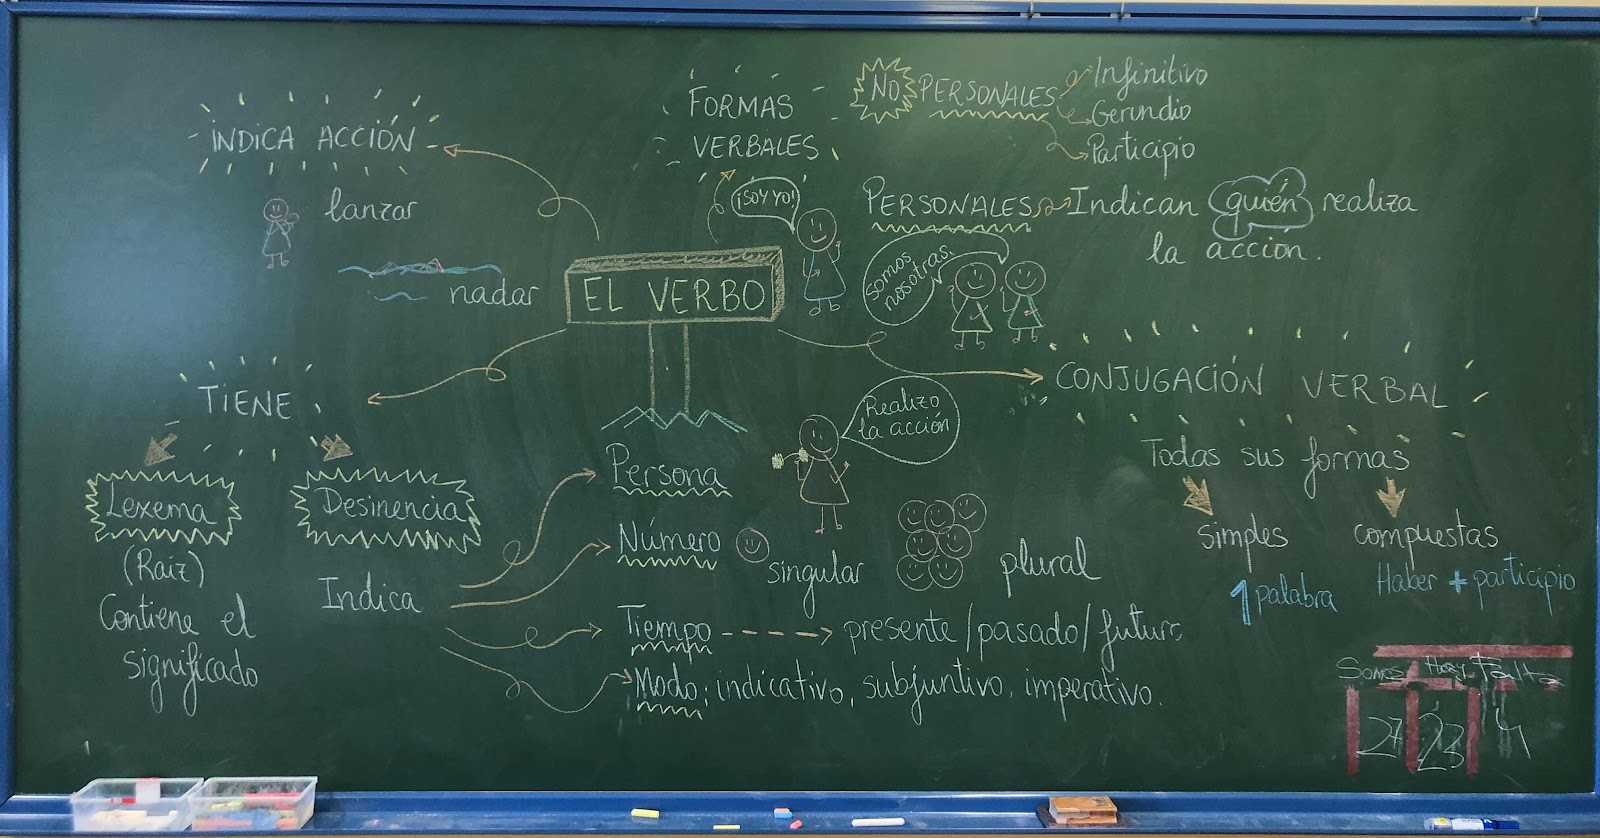 EL VERBO
INDICA ACCIÓN
lanzar
nadar
FORMAS
VERBALES
NO PERSONALES
Infinitivo
Gerundio
Participio
¡SOY YO!
PERSONALES
Indican quién realiza
la acción.
Somos
nosotras.
TIENE
Lexema
(Raíz)
Contiene el
significado
Desinencia
Indica
Persona
Realizo
la acción
Número
singular
plural
Tiempo
presente/pasado/futuro
Modo: indicativo, subjuntivo, imperativo.
CONJUGACIÓN VERBAL
Todas sus formas
simples
1 palabra
compuestas
Haber + participio
Somos Hay Falta
27 23 4